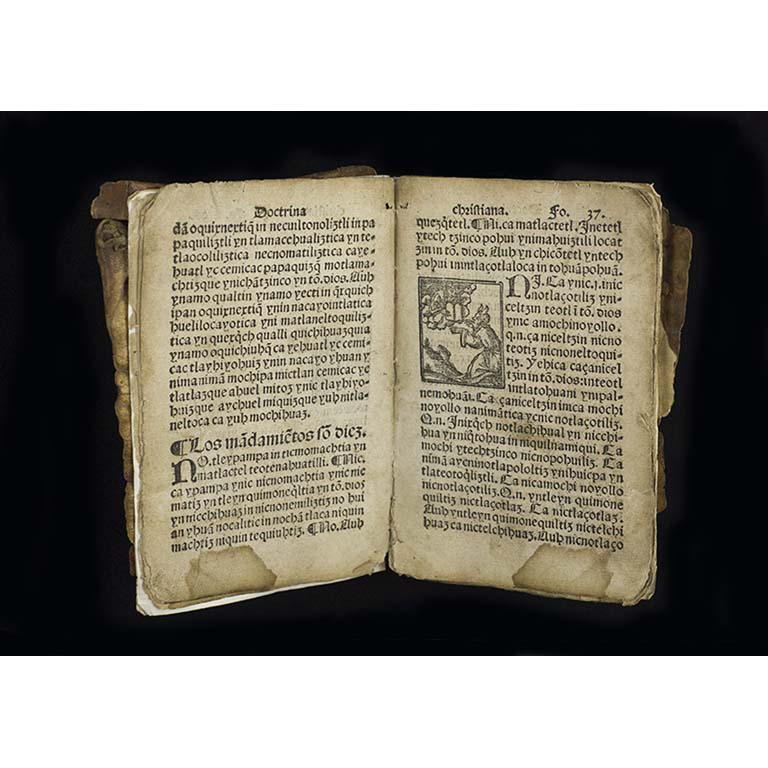 Doctrina
dā oquixnextiq̄ in necuiltonoliztli in pa
paquiliztli yn tlamacehualiztica yn te-
tlaocoliliztica necnomatiliztica ca ye-
huatl yc cemicac papaquizq̄ motlama-
chtizque ynichātzinco yn tō. dios. Auh
ynamo qualtin ynamo yecti in q̄xquich
ipan oquixnextiq̄ ynin nacayointlatica
huelilocayotica yni matlaneltoquiliz-
tica yn quexq̄ch qualli quichihuazquia
ynamo oquichiuhq̄ ca yehuatl yc cemi-
cac tlayhiyohuiz ynin nacayo yhuan y
nimanimā mochipa mictlan cemicac ye
tlatlazque ahuel mitoz ynic tlayhiyo-
huizque ayc huel miquizque yuh nitla-
neltoca ca yuh mochihuaz.
¶Los mādamiētos sō diez.
NO. tleypampa in ticmomachtia yn
matlactel teotenahuatilli. ¶Nic.
ca ypampa ynic nicnomachtia ynic nic
matiz yn tleyn quimoneq̄ltia yn tō. dios
yn nicchihuaz in nicnonemiliztiz no hui
an yhuā nocalitic in nochā tlaca niquin
machtiz niquin tequiuhtiz. ¶No. Auh
christiana. Fo. 37.
quezq̄tetl. ¶Ni. ca matlactetl. Jnetetl
ytech tzinco pohui ynimahuiztililocat
zin in tō. dios. Auh yn chicōtetl yntech
pohui inintlaçotlaloca in tohuāpohuā.
NJ. Ca ynic. j. inic
notlaçotiliz yni-
celtzin teotl i tō. dios
ynic amochinoyollo.
q.n. ça niceltzin nicno
teotiz nicnoneltoqui
tiz. Yehica caçanicel
tzin in tō. dios: inteotl
intlatohuani ynipal-
nemohuāi. Ca çaniceltzin imca mochi
noyollo nanimātica ycnic notlaçotiliz.
Q.n. Jnixq̄ch notlachihual yn nicchi-
hua yn niq̄tohua in niquilnamiqui. Ca
mochi ytechtzinco nicnopohuiliz. Ca
nimā ayeninotlapololtiz ynihuicpa yn
tlateotoq̄liztli. Ca nicamochi noyollo
nicnotlaçotiliz. Q.n. yntleyn quimone
quiltiz nictlaçotlaz. Ca nictlaçotlaz.
Auh yntleyn quimonequiltiz nictelchi
huaz ca nictelchihuaz. Auh nicnotlaço